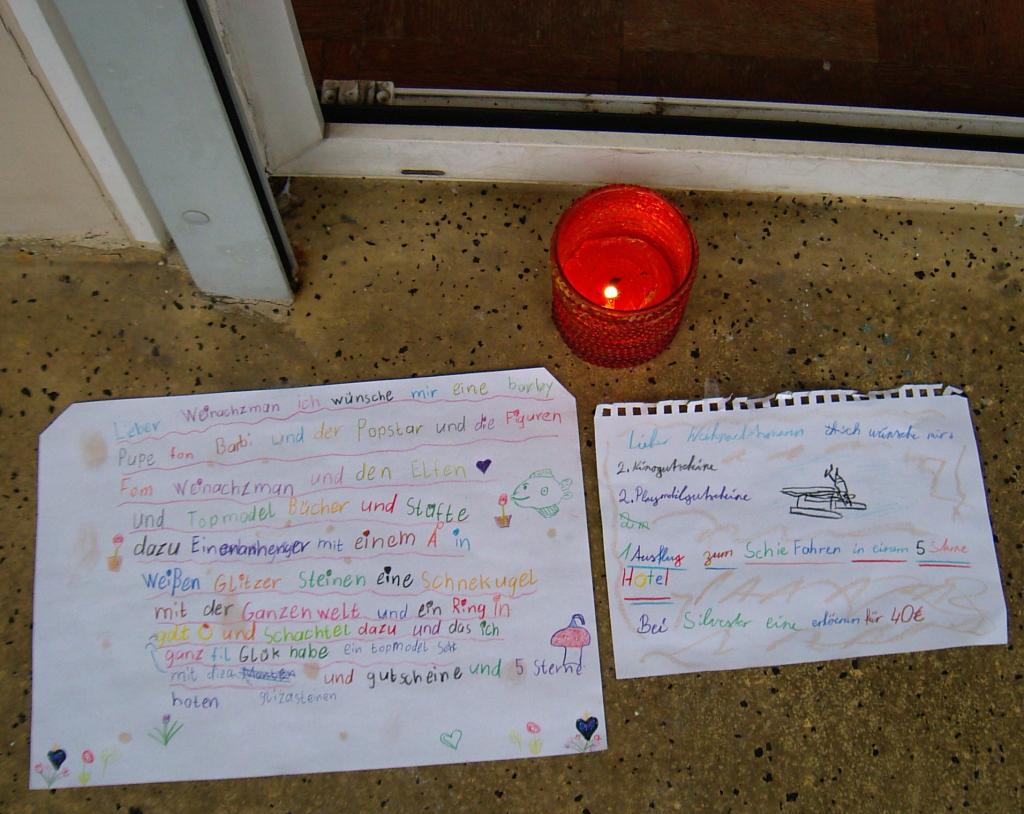 Leber Weinachzman ich wünsche mir eine barby
Pupe fon Barbi und der Popstar und die Figuren
Fom Weinachzman und den Elfen
und Topmodel Bücher und Stafte
dazu Einenanhenger mit einem A in
Weißen Glitzer Steinen eine Schnekugel
mit der Ganzen welt und ein Ring in
und Schachtel dazu und das ich
ganz fil Glük habe ein topmodel Set
mit diza und gutscheine und 5 Sterne
hoten glizasteinen
Lieber Weihnachtsmann ich wünsche mir
2. Kinogutscheine
2. Playmobilgutscheine
1 Ausflug zum Schie Fahren in einem 5 Sterne
Hotel
Bei Silvester eine für 40€